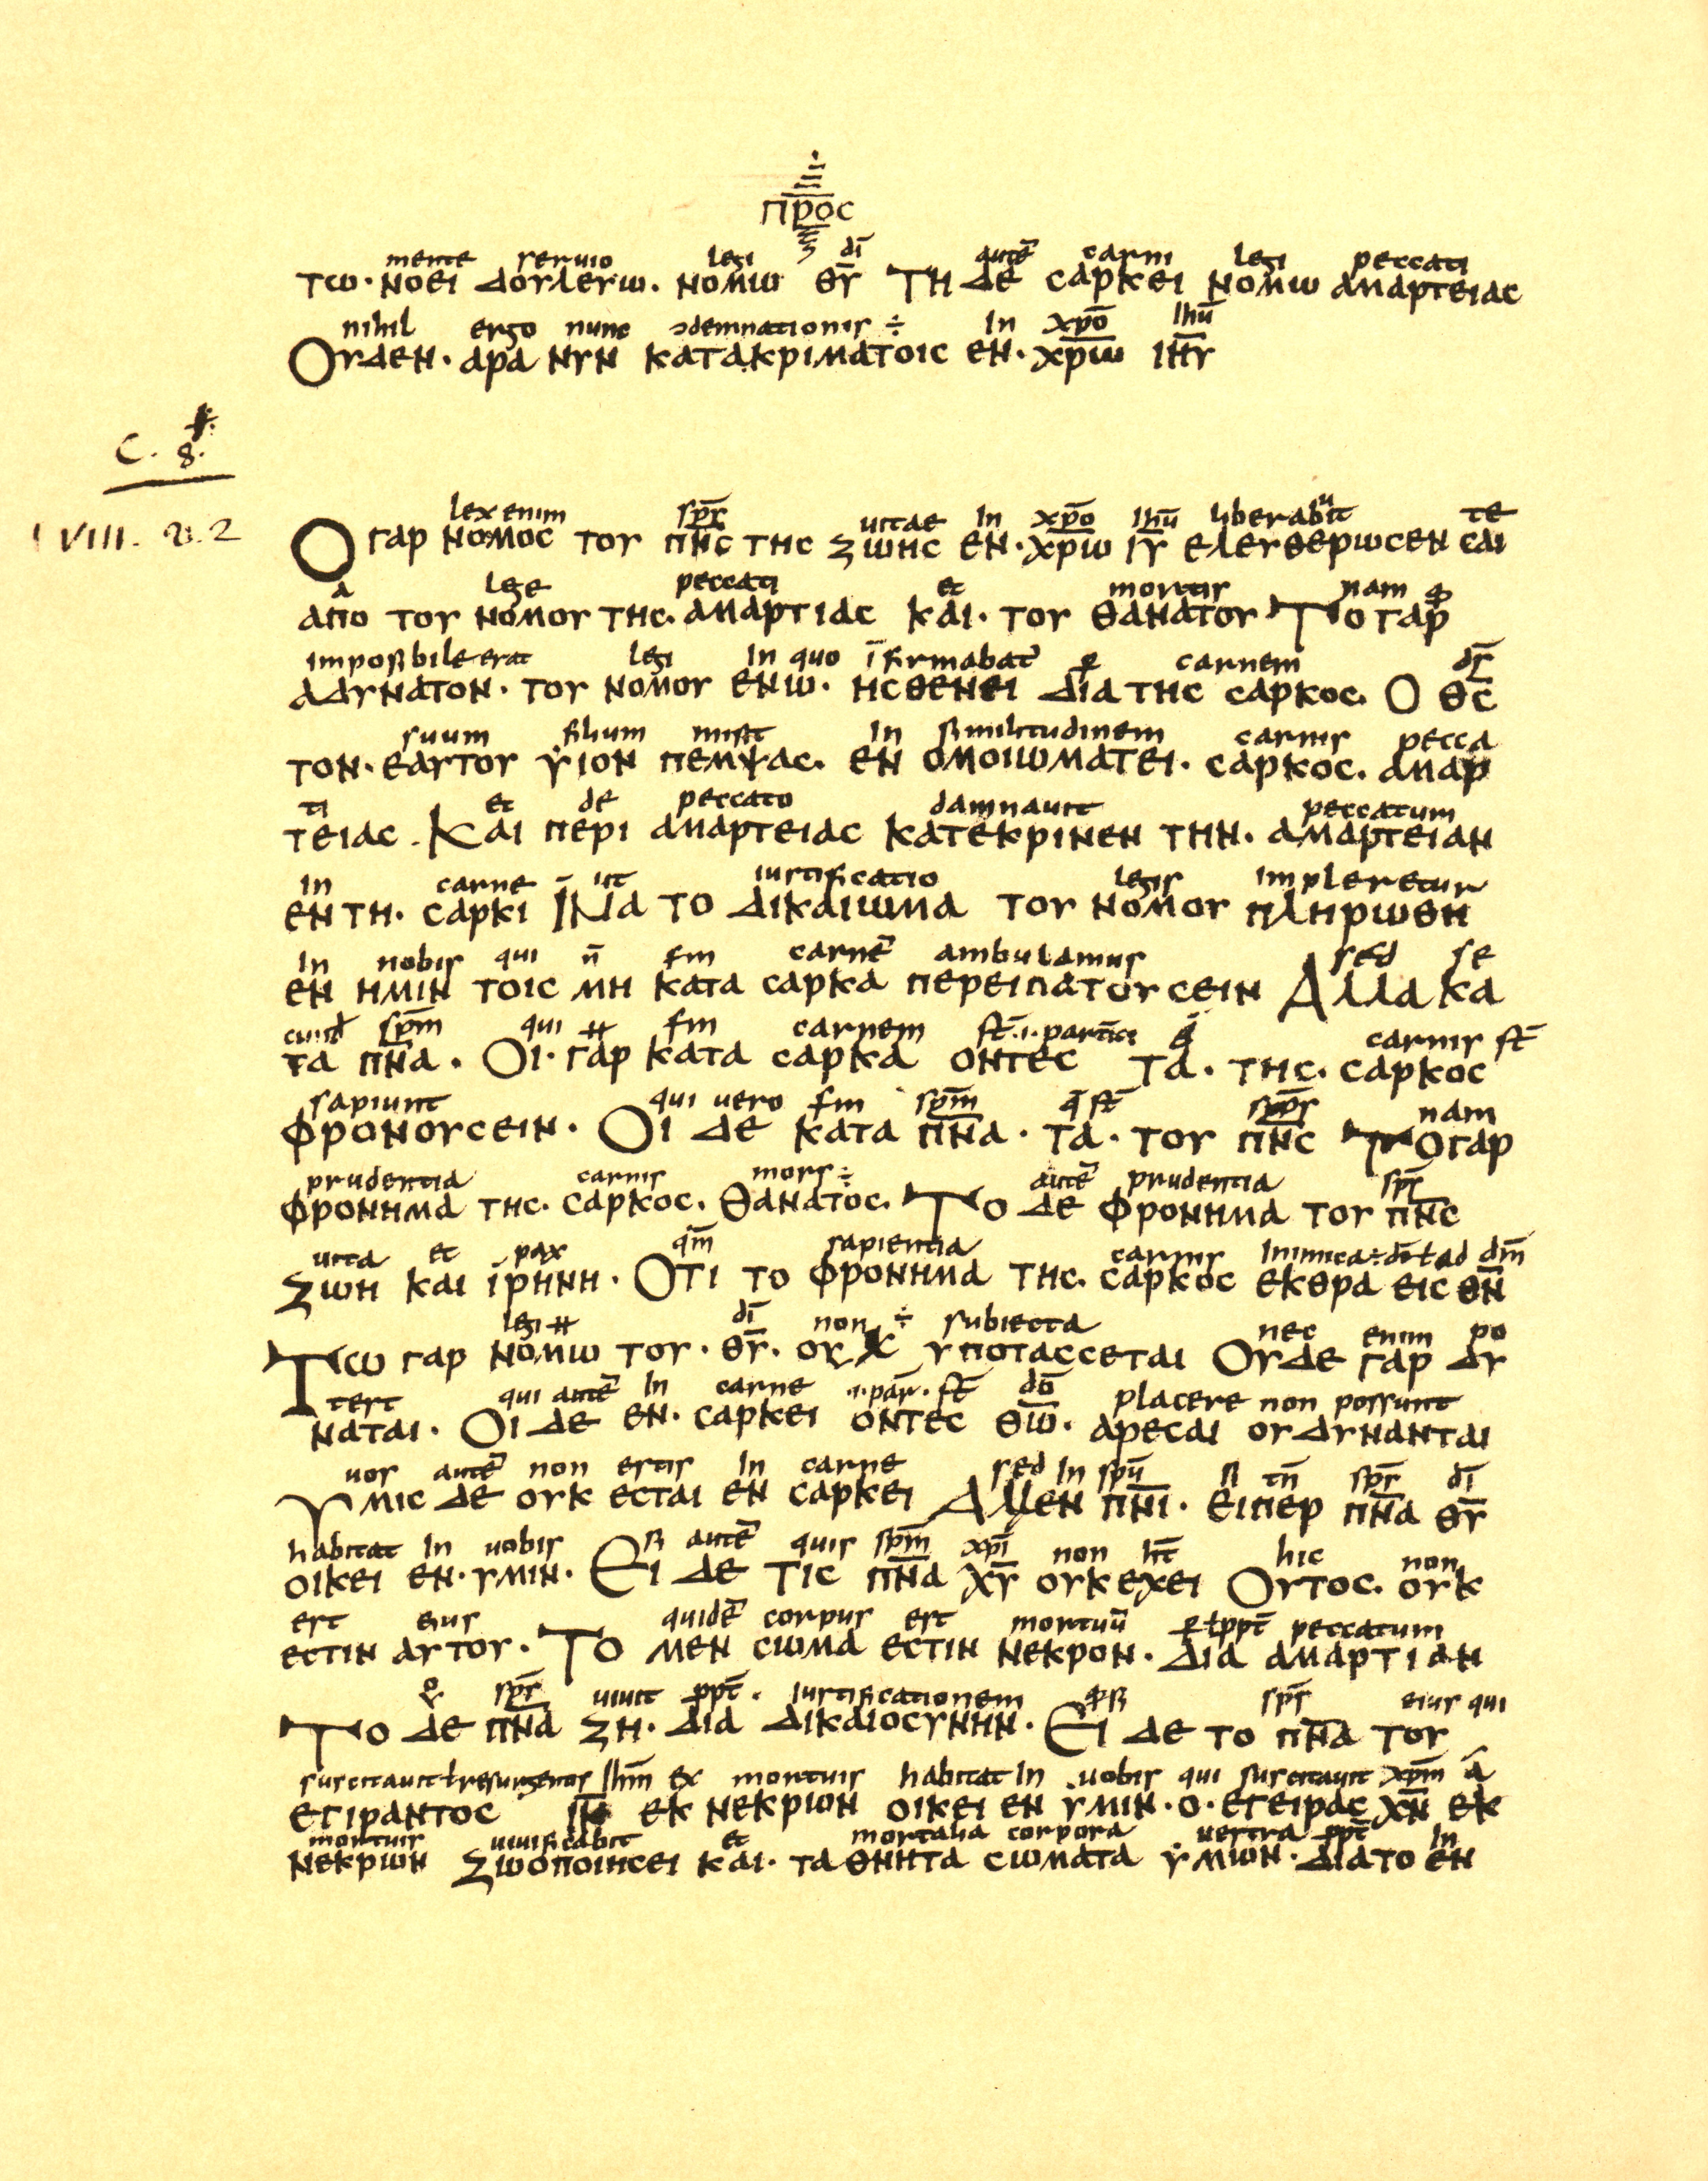 ΠΡΟC
mente seruio legi d̄ī autē carni legi peccati
ΤΩ · ΝΟΕΙ ΔΟΥΛΕΥΩ · ΝΟΜΩ Θ̄Ῡ ΤΗ ΔΕ CΑΡΚΕΙ ΝΟΜΩ ΑΜΑΡΤΕΙΑC
nihil ergo nunc ɔdemnationis ÷ In xp̄ō Ihū
ΟΥΔΕΝ · ΑΡΑ ΝΥΝ ΚΑΤΑΚΡΙΜΑΤΟΙC ΕΝ · ΧΡ̄Ω̄ ΙΗ̄Ῡ
C. 8.
VIII. v. 2
lex enim sp̄s uitae In xp̄o Ihū liberabit te
Ο ΓΑΡ ΝΟΜΟC ΤΟΥ Π̄Ν̄C ΤΗC ΖΩΗC ΕΝ · ΧΡ̄Ω̄ ΙῩ ΕΛΕΥΘΕΡΩCΕΝ CΑΙ
a lege peccati et mortis nam
ΑΠΟ ΤΟΥ ΝΟΜΟΥ ΤΗC · ΑΜΑΡΤΙΑC ΚΑΙ · ΤΟΥ ΘΑΝΑΤΟΥ ΤΟ ΓΑΡ
Impossibile erat legi In quo īfirmabat carnem d̄s
ΑΔΥΝΑΤΟΝ · ΤΟΥ ΝΟΜΟΥ ΕΝΩ · ΗCΘΕΝΕΙ ΔΙΑ ΤΗC CΑΡΚΟC · Ο Θ̄C̄
suum filium misit In similitudinem carnis pecca
ΤΟΝ · ΕΑΥΤΟΥ ΥΙΟΝ ΠΕΜΨΑC · ΕΝ ΟΜΟΙΩΜΑΤΕΙ · CΑΡΚΟC · ΑΜΑΡ
ti et de peccato damnauit peccatum
ΤΕΙΑC · ΚΑΙ ΠΕΡΙ ΑΜΑΡΤΕΙΑC ΚΑΤΕΚΡΙΝΕΝ ΤΗΝ · ΑΜΑΡΤΕΙΑΝ
In carne ut iustificatio legis Impleretur
ΕΝ ΤΗ · CΑΡΚΙ ΙΝΑ ΤΟ ΔΙΚΑΙΩΜΑ ΤΟΥ ΝΟΜΟΥ ΠΛΗΡΩΘΗ
In nobis qui n̄ sm carnē ambulamus sed se
ΕΝ ΗΜΙΝ ΤΟΙC ΜΗ ΚΑΤΑ CΑΡΚΑ ΠΕΡΕΙΠΑΤΟΥCΕΙΝ ΑΛΛΑ ΚΑ
cund sp̄m qui sm carnem st̄ · i · carnis st̄
ΤΑ Π̄Ν̄Α · ΟΙ · ΓΑΡ ΚΑΤΑ CΑΡΚΑ ΟΝΤΕC ΤΑ · ΤΗC · CΑΡΚΟC
sapiunt qui uero sm sp̄m q̄ st̄ sp̄s nam
ΦΡΟΝΟΥCΕΙΝ · ΟΙ ΔΕ ΚΑΤΑ Π̄Ν̄Α · ΤΑ · ΤΟΥ Π̄Ν̄C ΤΟ ΓΑΡ
prudentia carnis mors ÷ autē prudentia sp̄s
ΦΡΟΝΗΜΑ ΤΗC · CΑΡΚΟC · ΘΑΝΑΤΟC · ΤΟ ΔΕ ΦΡΟΝΗΜΑ ΤΟΥ Π̄Ν̄C
uita et pax qm̄ sapientia carnis Inimica ÷ ad dm̄
ΖΩΗ ΚΑΙ ΙΡΗΝΗ · ΟΤΙ ΤΟ ΦΡΟΝΗΜΑ ΤΗC · CΑΡΚΟC ΕΚΘΡΑ ΕΙC Θ̄Ν̄
legi d̄ī non ÷ subiecta nec enim po
ΤΩ ΓΑΡ ΝΟΜΩ ΤΟΥ · Θ̄Ῡ · ΟΥΧ ΥΠΟΤΑCCΕΤΑΙ ΟΥΔΕ ΓΑΡ ΔΥ
test qui autē In carne · i · par · st̄ dō placere non possunt
ΝΑΤΑΙ · ΟΙ ΔΕ ΕΝ · CΑΡΚΕΙ ΟΝΤΕC Θ̄Ω̄ · ΑΡΕCΑΙ ΟΥ ΔΥΝΑΝΤΑΙ
uos autē non estis In carne sed In spū si tn̄ sp̄s d̄ī
ΥΜΙC ΔΕ ΟΥΚ ΕCΤΑΙ ΕΝ CΑΡΚΕΙ ΑΛΛΕΝ Π̄Ν̄Ι · ΕΙΠΕΡ Π̄Ν̄Α Θ̄Ῡ
habitat In uobis si autē quis sp̄m xp̄i non ht̄ hic non
ΟΙΚΕΙ ΕΝ · ΥΜΙΝ · ΕΙ ΔΕ ΤΙC Π̄Ν̄Α Χ̄Ῡ ΟΥΚ ΕΧΕΙ ΟΥΤΟC · ΟΥΚ
est eius quidē corpus est mortuū ppt̄ peccatum
ΕCΤΙΝ ΑΥΤΟΥ · ΤΟ ΜΕΝ CΩΜΑ ΕCΤΙΝ ΝΕΚΡΟΝ · ΔΙΑ ΑΜΑΡΤΙΑΝ
sp̄s uiuit ppt̄ · iustificationem sp̄s eius qui
ΤΟ ΔΕ Π̄Ν̄Α ΖΗ · ΔΙΑ ΔΙΚΑΙΟCΥΝΗΝ · ΕΙ ΔΕ ΤΟ Π̄Ν̄Α ΤΟΥ
suscitauit Ihm̄ ex mortuis habitat In uobis qui suscitauit xp̄m ā
ΕΓΙΡΑΝΤΟC Ι̅Ν̅ ΕΚ ΝΕΚΡΩΝ ΟΙΚΕΙ ΕΝ ΥΜΙΝ · Ο · ΕΓΕΙΡΑC Χ̄Ν̄ ΕΚ
mortuis uiuificabit et mortalia corpora uestra ppt̄ In
ΝΕΚΡΩΝ ΖΩΟΠΟΙΗCΕΙ ΚΑΙ · ΤΑ ΘΝΗΤΑ CΩΜΑΤΑ ΥΜΩΝ · ΔΙΑ ΤΟ ΕΝ